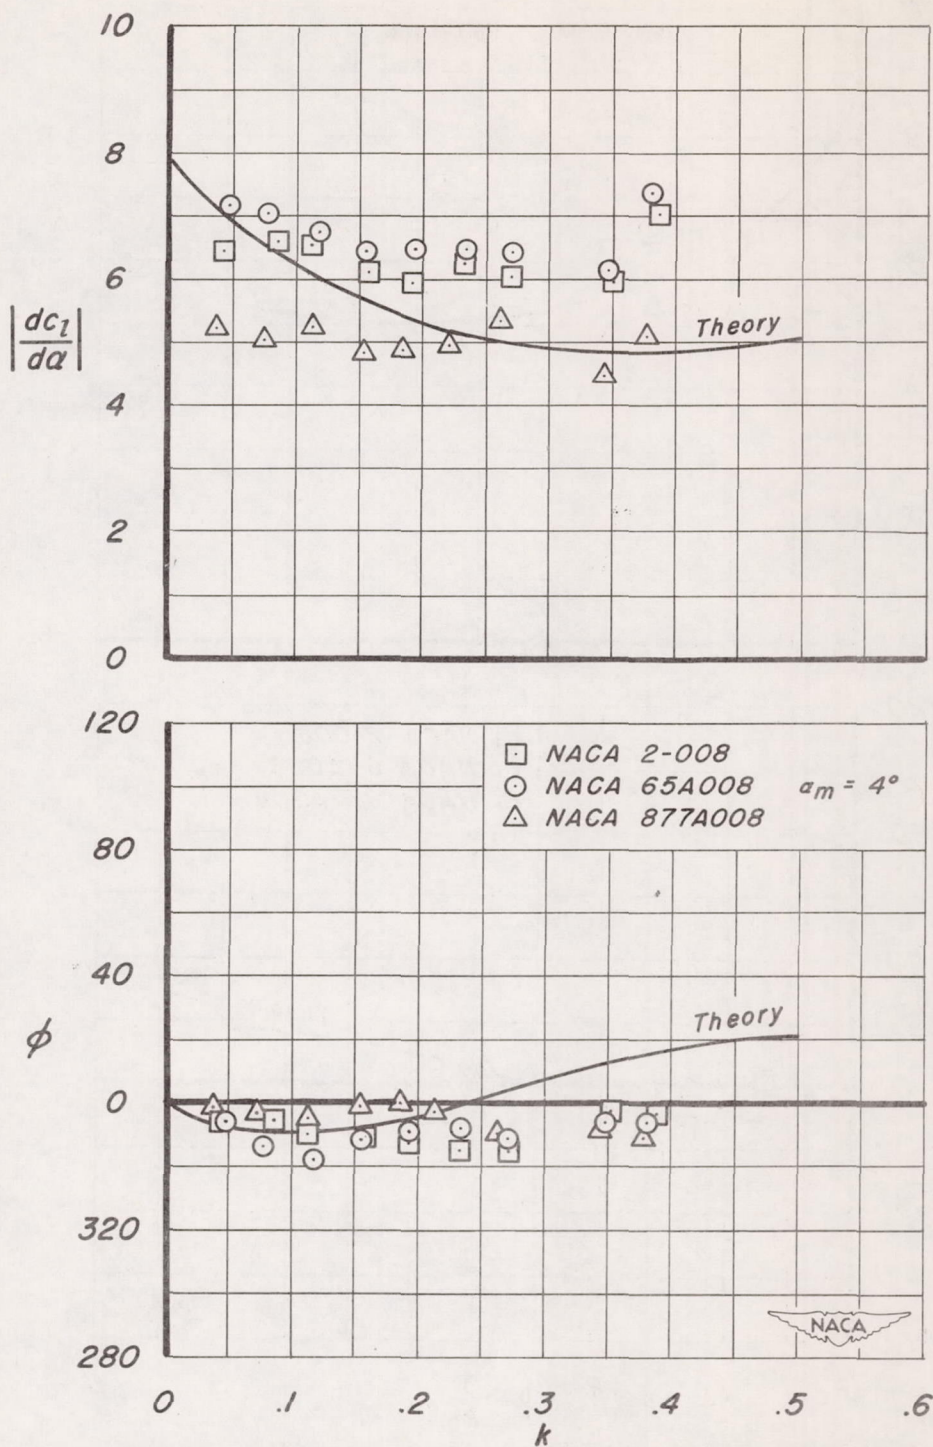 10
8
6
4
2
0
|dc_l/dα|
Theory
120
80
40
0
320
280
ϕ
NACA 2-008
NACA 65A008 α_m = 4°
NACA 877A008
Theory
NACA
0 .1 .2 .3 .4 .5 .6
k